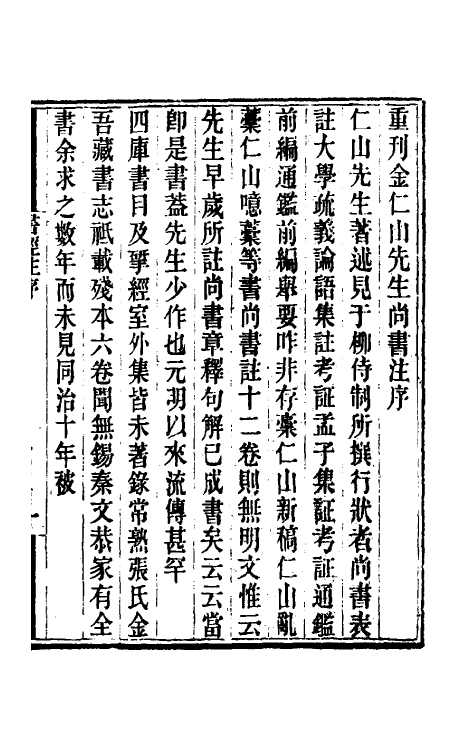 重刊金仁山先生尚書注序
仁山先生著述見于柳侍制所撰行狀者尚書表
註大學疏義論語集註考証孟子集証考証通鑑
前編通鑑前編舉要昨非存藁仁山新稿仁山亂
藁仁山噫藁等書尚書註十二卷則無明文惟云
先生早歲所註尚書章釋句解已成書矣云云當
卽是書葢先生少作也元胡以來流傳甚罕
四庫書目及揅經室外集皆未著錄常熟張氏金
吾藏書志祗載殘本六卷聞無錫秦文恭家有全
書余求之數年而未見同治十年被
書經注序
一